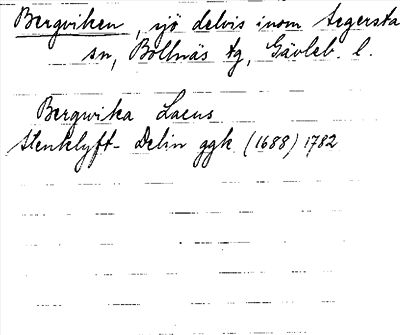 Bergviken, sjö delvis inom Segersta
sn, Bollnäs tg, Gävleb. l.
Bergwika Lacus
Stenklyft - Delin ggk (1688) 1782